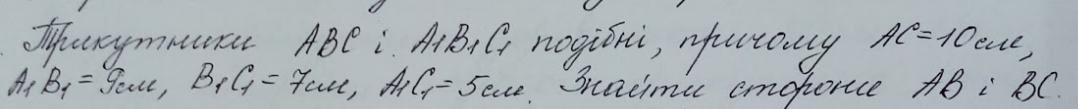 Трикутники ABC і A₁B₁C₁ подібні, причому AC=10см,
A₁B₁=9см, B₁C₁=7см, A₁C₁=5см. Знайти сторони AB і BC.